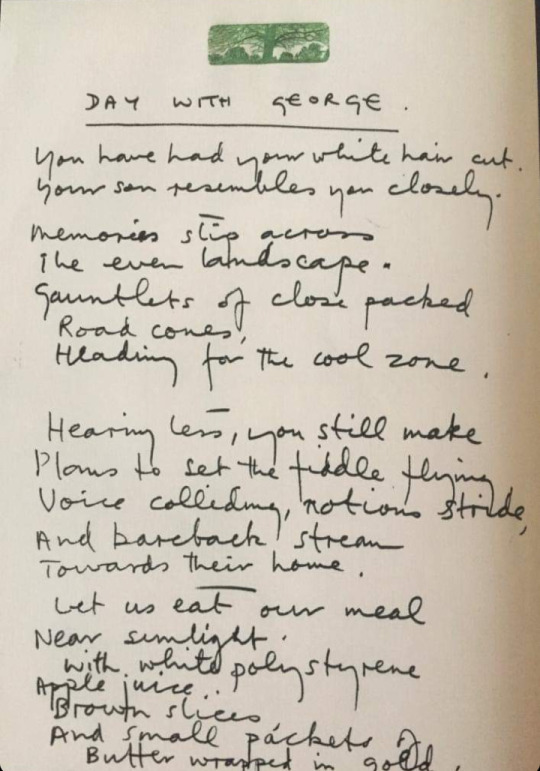 DAY WITH GEORGE.
You have had your white hair cut.
Your son resembles you closely.
Memories slip across
The even landscape.
Gauntlets of close packed
Road cones,
Heading for the cool zone.
Hearing less, you still make
Plans to set the fiddle flying
Voice colliding, notions stride,
And bareback stream
Towards their home.
Let us eat our meal
Near sunlight.
With white polystyrene
Apple juice.
Brown slices
And small packets of
Butter wrapped in gold.